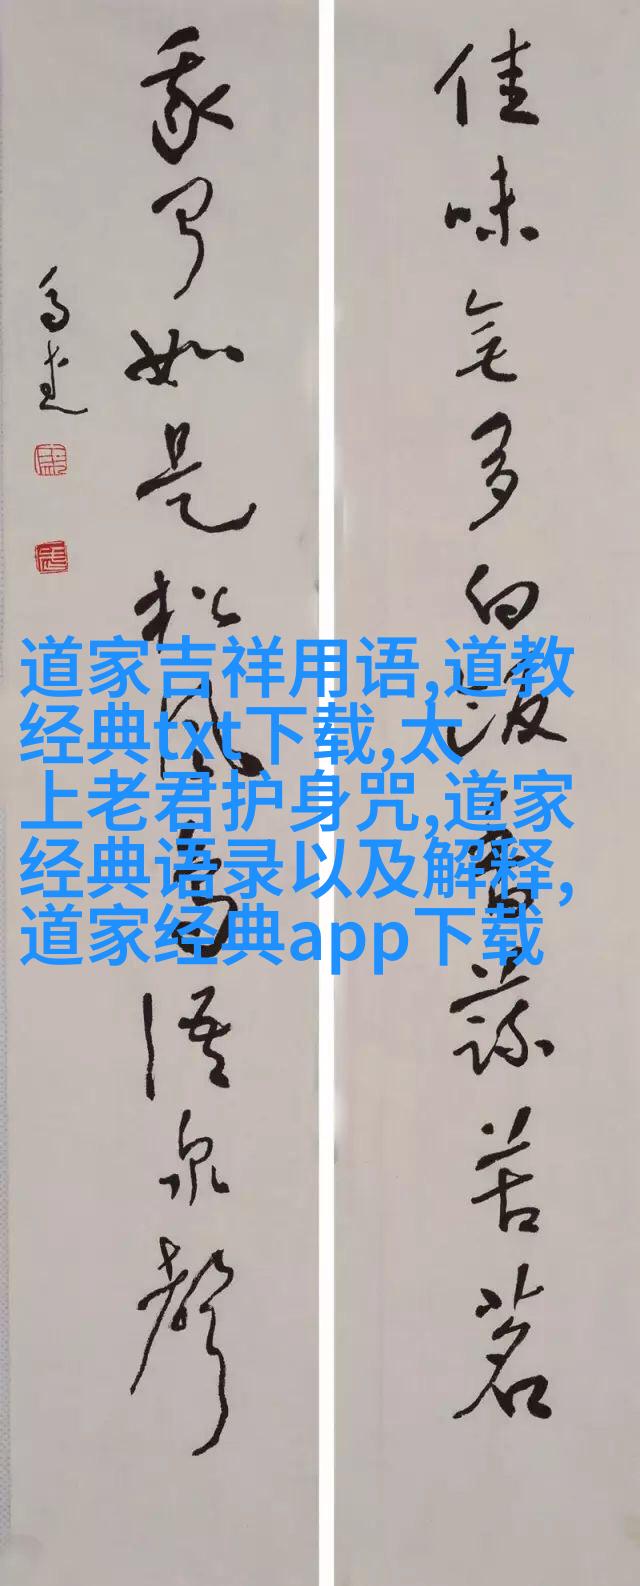 佳味無多白飯香蔬苦茗
我聞如是松風鳥語泉聲
道家吉祥用语,道教
经典txt下载,太
上老君护身咒,道家
经典语录以及解释,
道家经典app下载